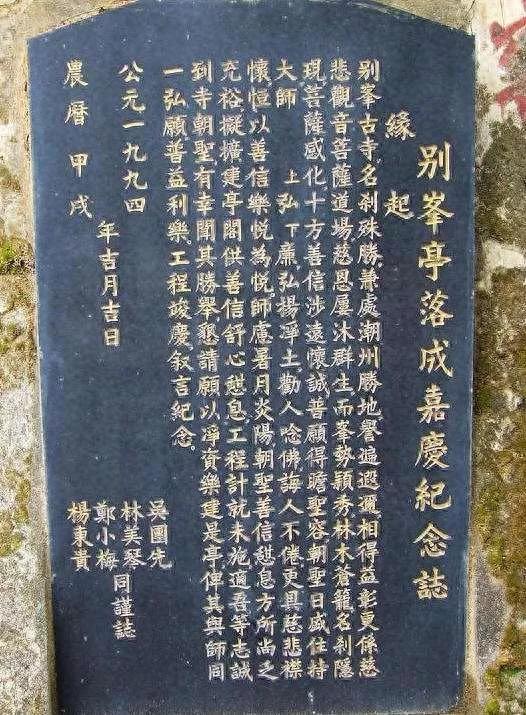 别峯亭落成嘉慶紀念誌
緣起
别峯古寺，名刹殊勝，兼處潮州勝地，譽遍遐邇，相得益彰，更係慈
悲觀音菩薩道場，慈恩屢沐群生，而峯勢穎秀，林木蒼籠，名刹隱
現，菩薩感化十方，善信涉遠懷誠，普願得瞻聖容，朝聖日盛，住持
大師 上弘下廉，弘揚淨土，勸人唸佛，誨人不倦，更具慈悲襟
懷，恒以善信樂悦為悦，師慮暑月炎陽，朝聖善信憇息方所尚乏
充裕，擬擴建亭閣，供善信舒心憇息，工程計就未施，適吾等志誠
到寺朝聖，有幸聞其勝舉，懇請願以淨資樂建是亭，俾其與師同
一弘願，普益利樂。工程竣慶，叙言紀念。
公元一九九四
農曆甲戌
年吉月吉日
吳團先
林美琴
鄭小梅
楊東貴
同謹誌